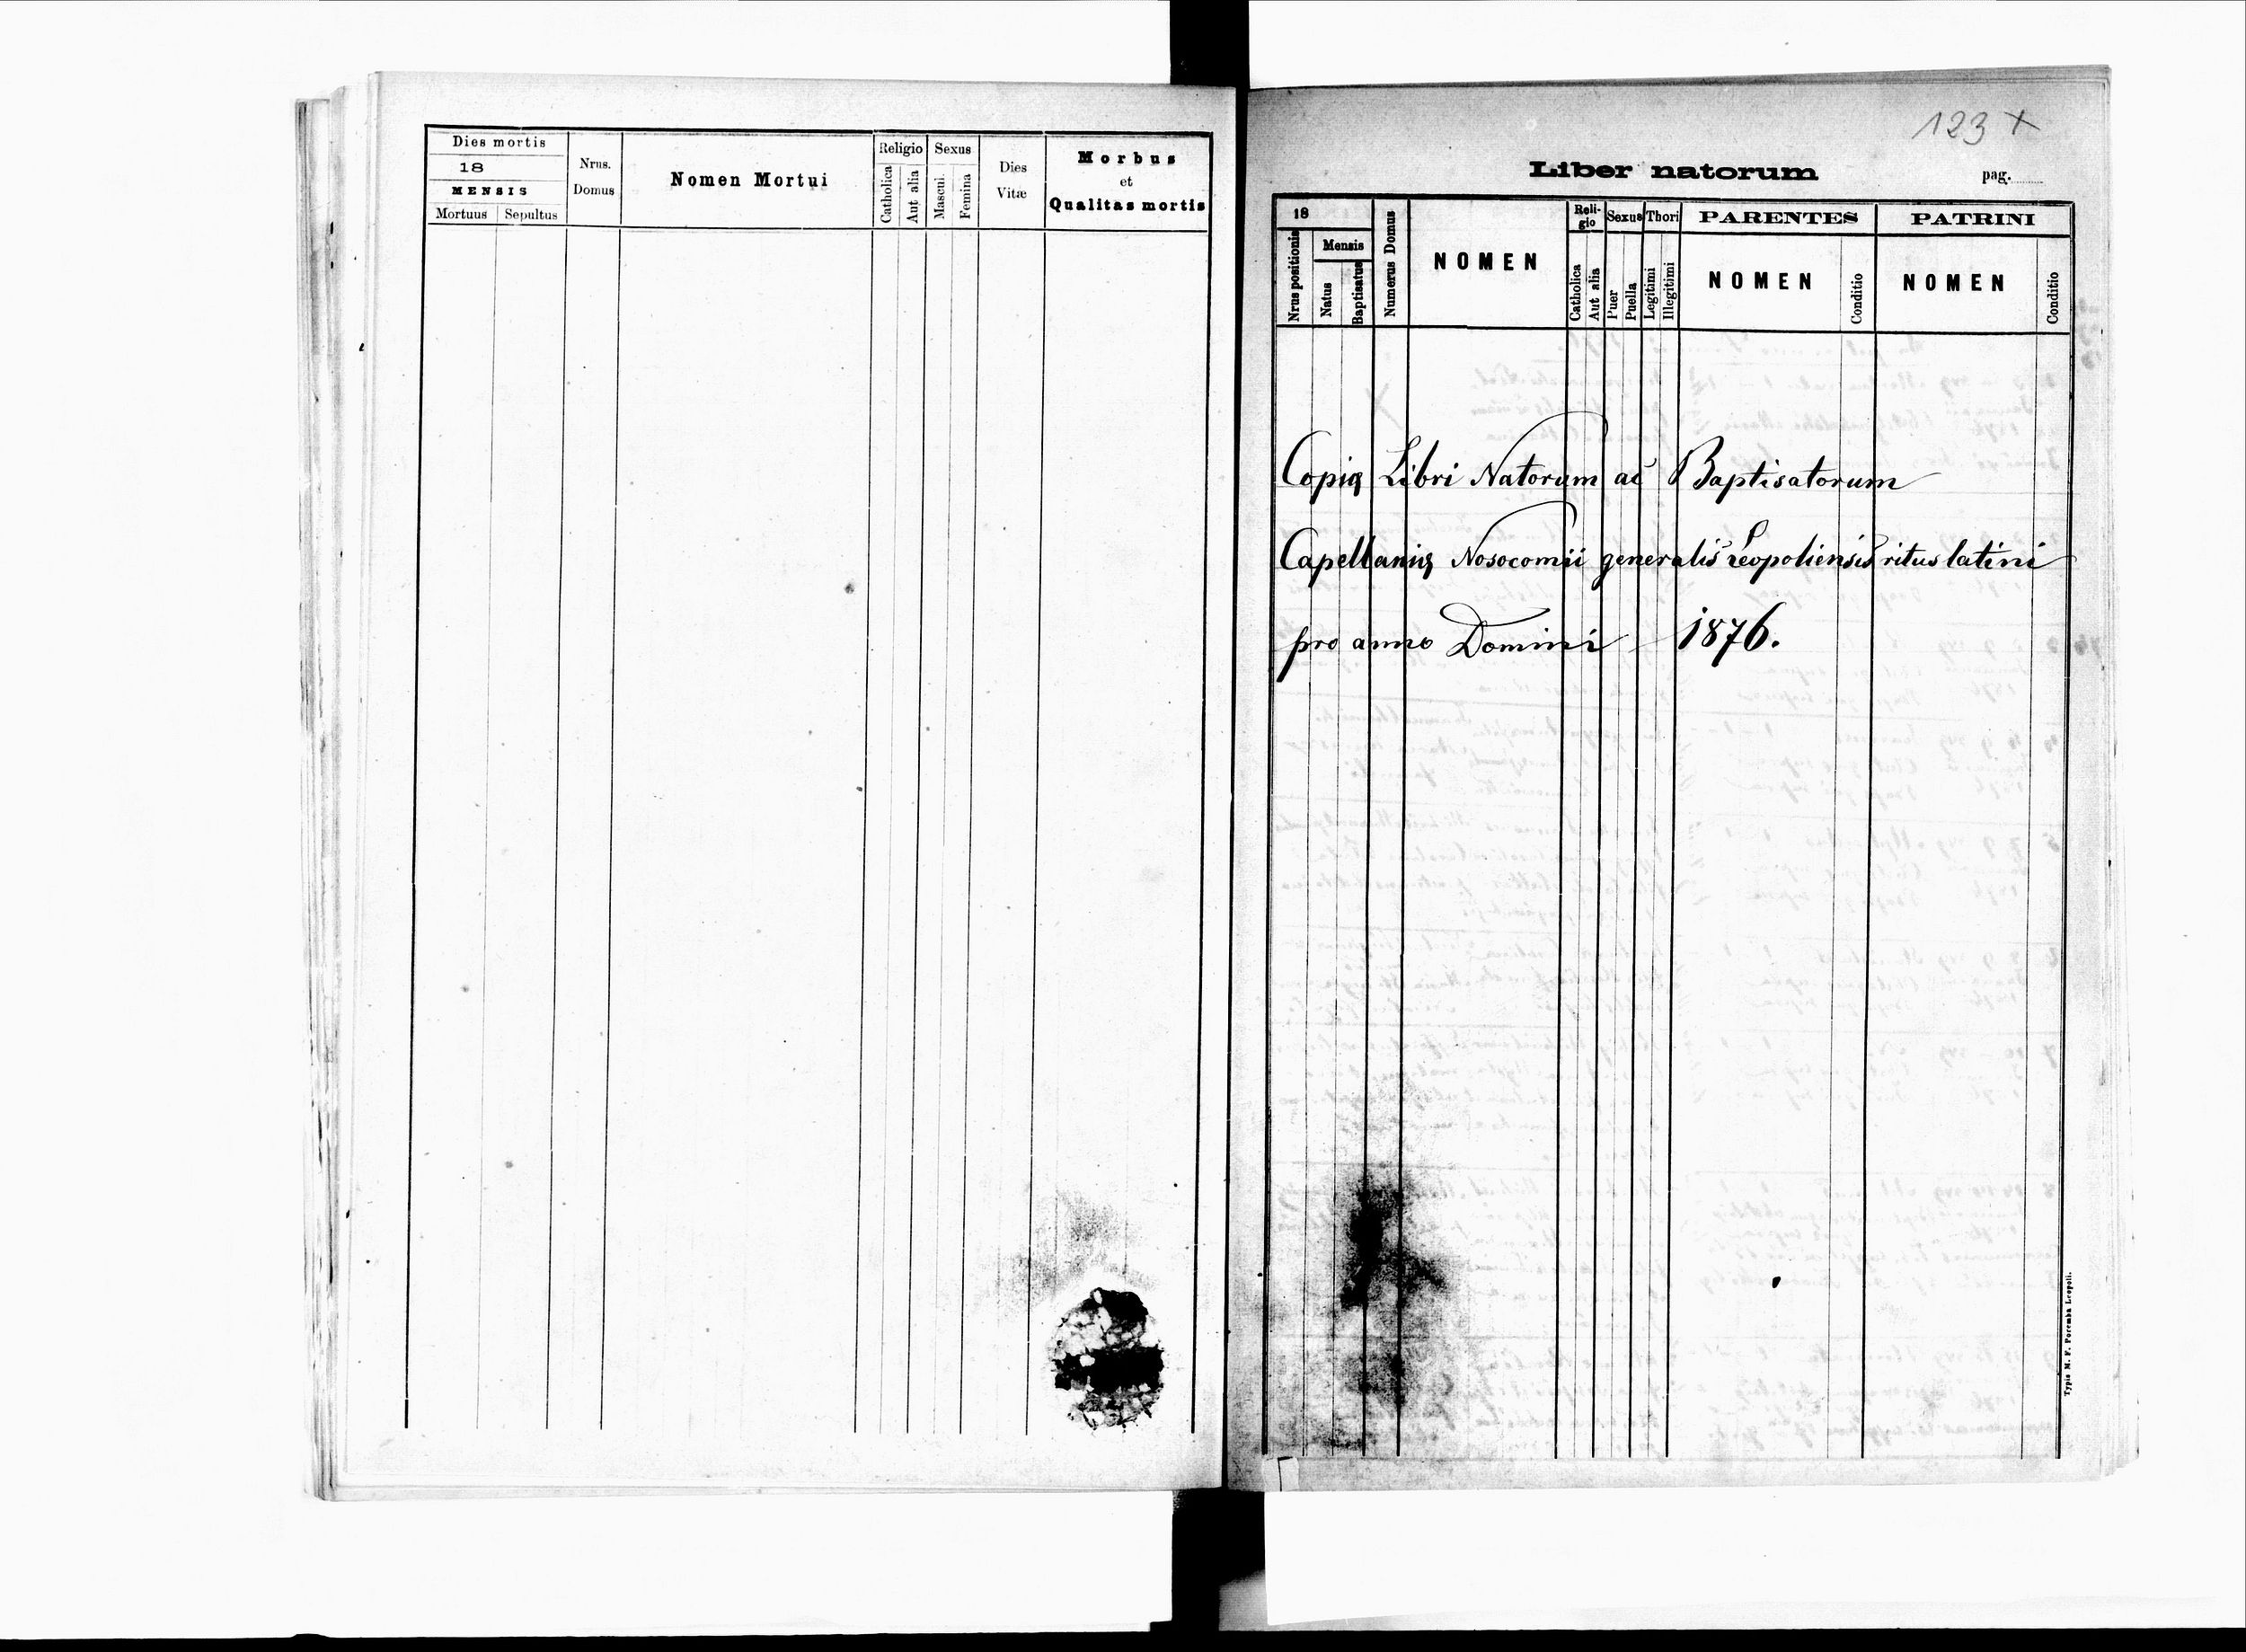 Dies mortis
18
MENSIS
Mortuus Sepultus
Nrus. Domus
Nomen Mortui
Religio
Catholica
Aut alia
Sexus
Mascul.
Femina
Dies Vitæ
Morbus
et
Qualitas mortis
123 +
Liber natorum
pag.
18
Nrus positionis
Mensis
Natus
Baptisatus
Numerus Domus
NOMEN
Religio
Catholica
Aut alia
Sexus
Puer
Puella
Thori
Legitimi
Illegitimi
PARENTES
NOMEN
Conditio
PATRINI
NOMEN
Conditio
Copia Libri Natorum ac Baptisatorum
Capellaniæ Nosocomii generalis Leopoliensis ritus latini
pro anno Domini 1876.
Typis M. F. Poremba Leopoli.